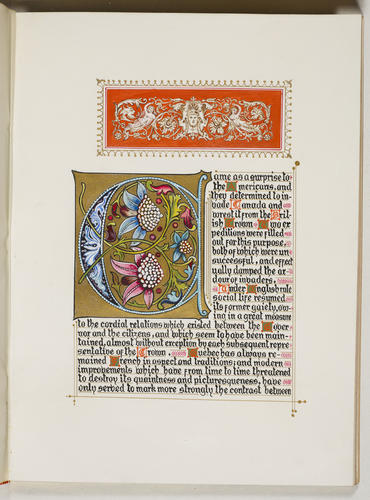 Came as a surprise to
the Americans, and
they determined to in
vade Canada and
wrest it from the Brit
ish Crown. Two ex
peditions were fitted
out for this purpose,
both of which were un
successful, and effect
ually damped the ar
dour of invaders.
Under English rule
social life resumed
its former gaiety, ow
ing in a great measure
to the cordial relations which existed between the Gover
nor and the citizens, and which seem to have been main
tained, almost without exception by each subsequent repre
sentative of the Crown. Quebec has always re
mained French in aspect and traditions; and modern
improvements which have from time to time threatened
to destroy its quaintness and picturesqueness, have
only served to mark more strongly the contrast between